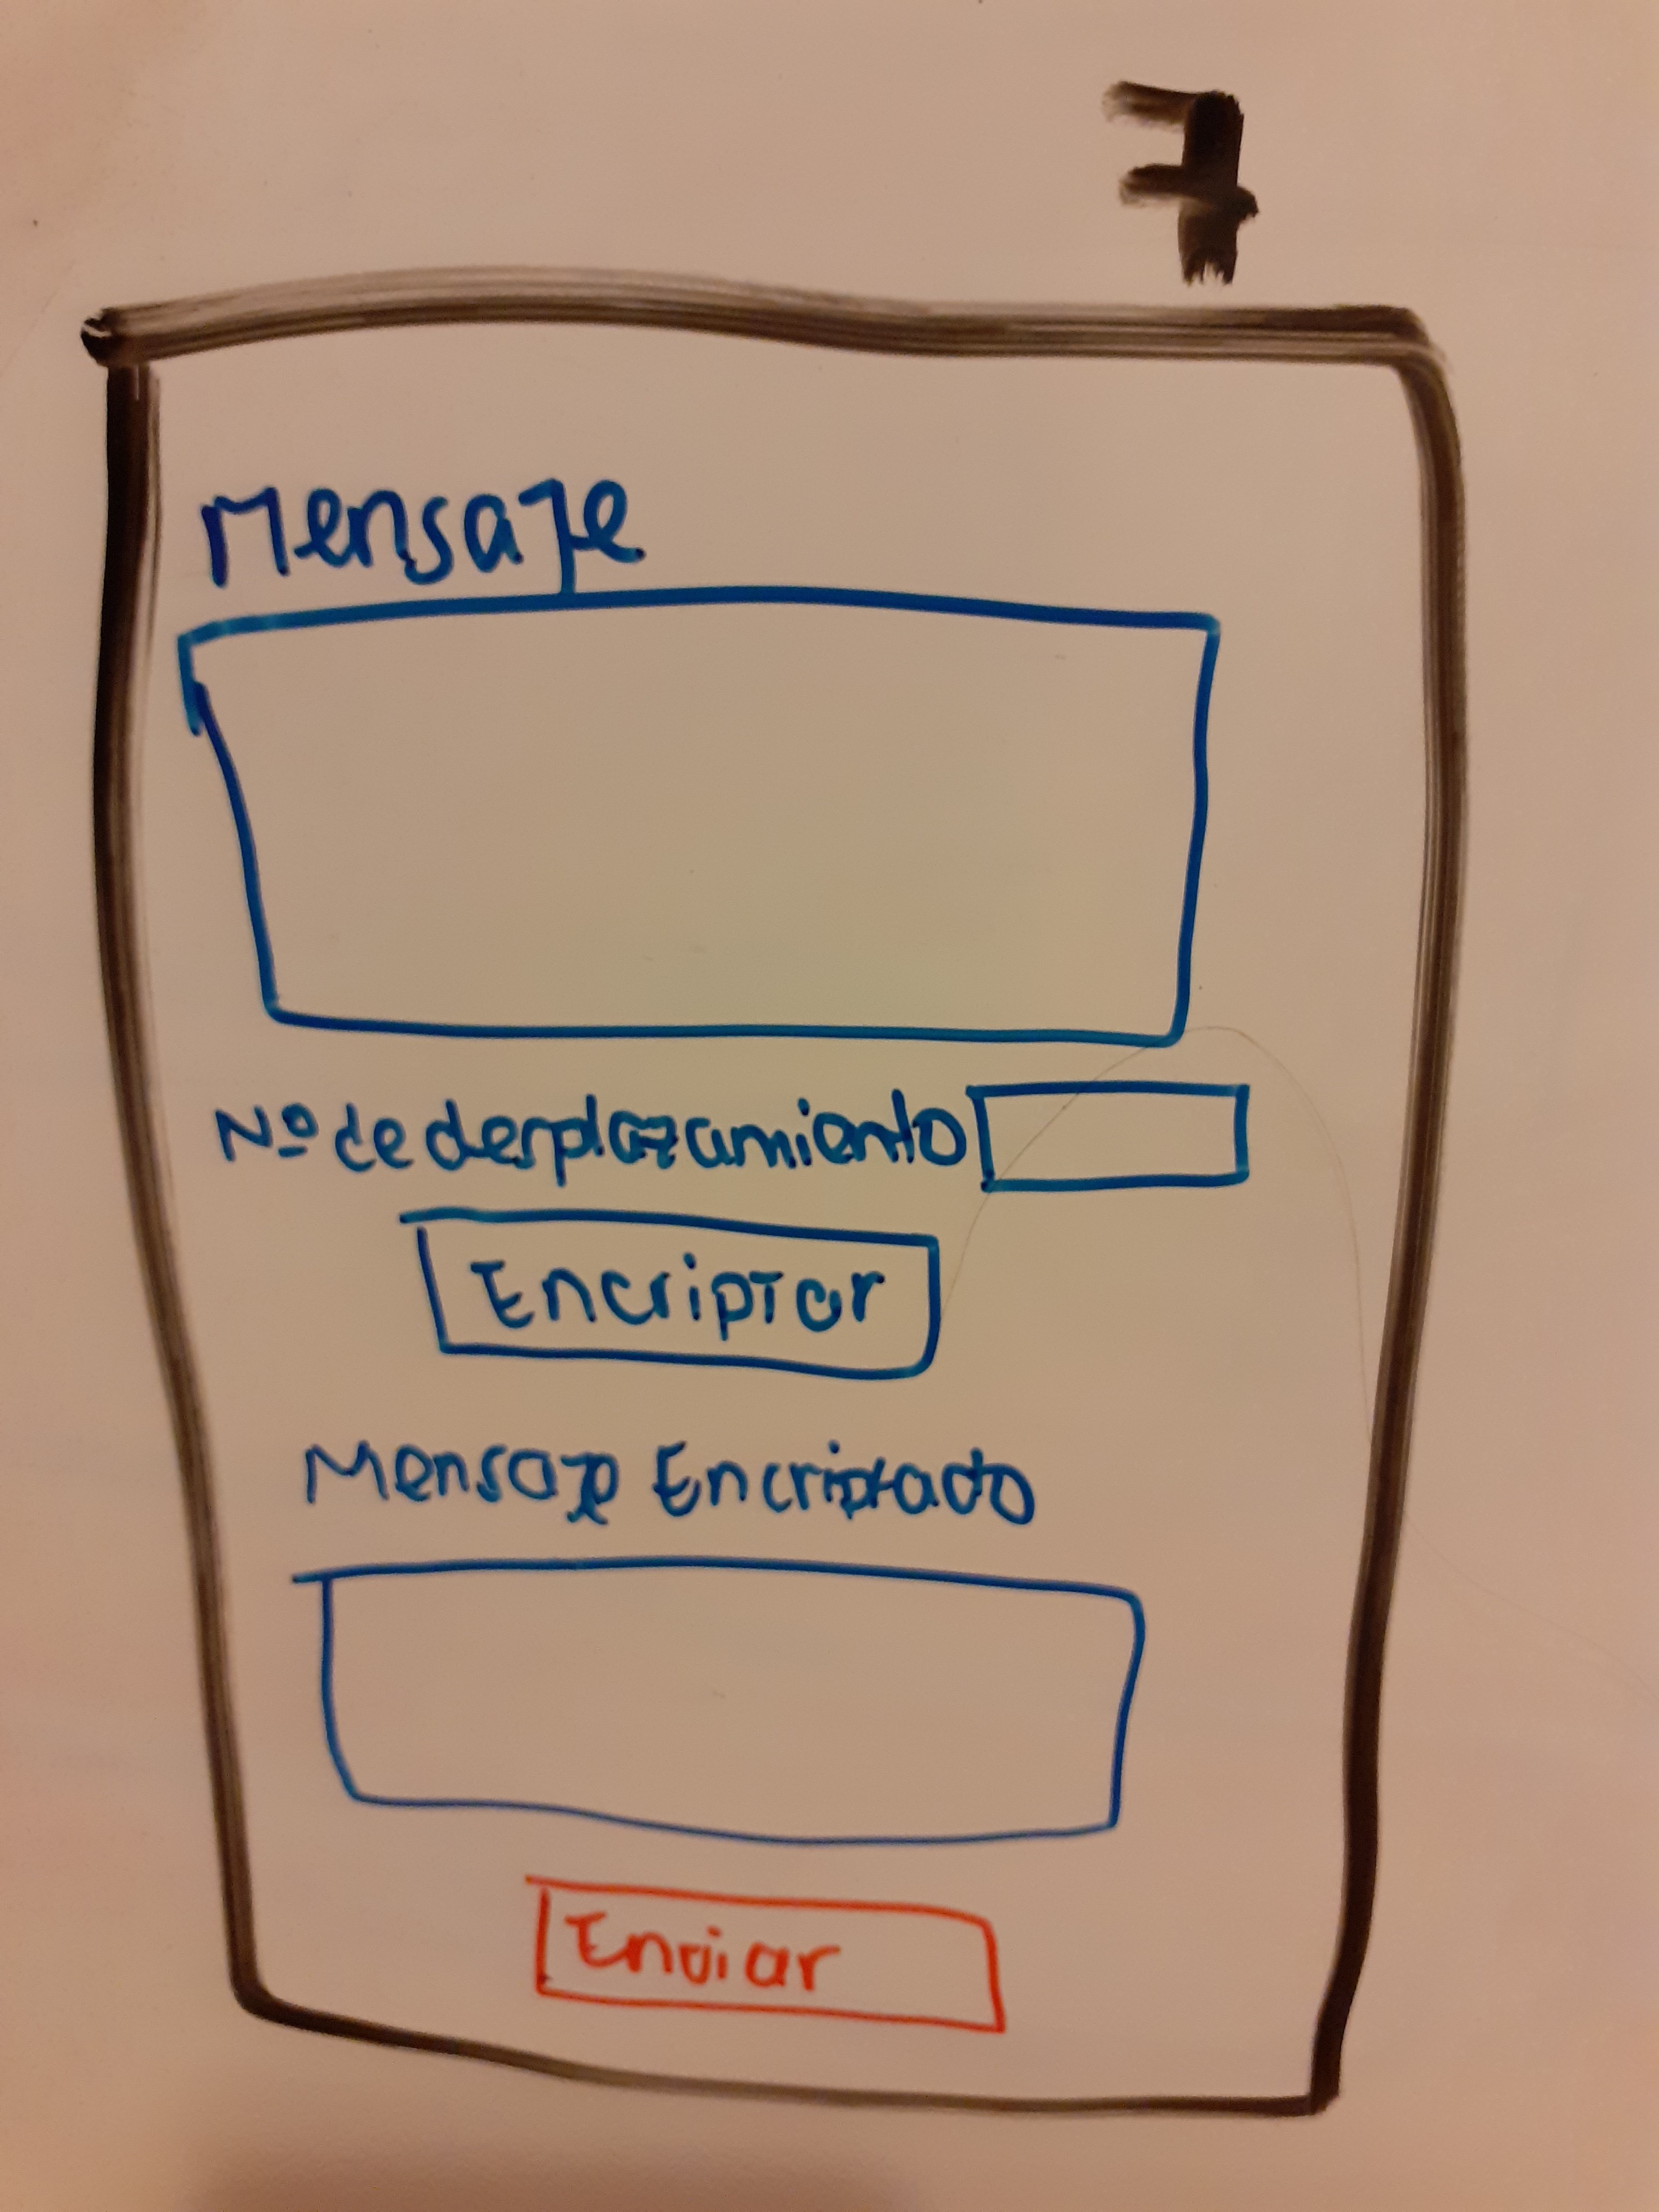 7
Mensaje
Nº de desplazamiento
Encriptar
Mensaje Encriptado
Enviar